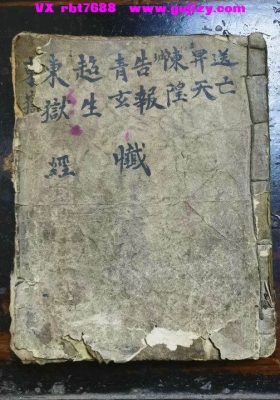 VX rbt7688 www.gujizy.com
送亡
昇天
悚隍
告報
青玄懺
超生
東獄經